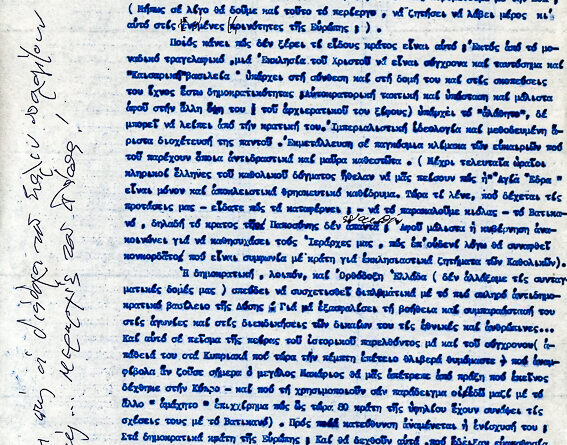 ( Μήπως σέ λίγο θά δοῦμε καί τοῦτο τό περίεργο , νά ζητήσει νά λάβει μέρος κι'
αὐτό στίς ἑνωμένες κοινότητες τῆς Εὐρώπης ; ) .
Ποιός κάνει πώς δέν ξέρει τί εἴδους κράτος εἶναι αὐτό ; Ἐκτός ἀπό τό μο-
ναδικό τραγελαφικό , μιά Ἐκκλησία τοῦ Χριστοῦ νά εἶναι σύγχρονα καί ταυτόσημα καί
"Καισαρική βασιλεία" ὑπάρχει στή σύνθεση καί στή δομή του καί στίς σκοπεύσεις
του ἴχνος ἔστω δημοκρατικότητας ; Αὐτοκρατορική τακτική καί ὑπόσταση καί μάλιστα
ἀφοῦ στήν ἄλλη ὄψη του ἀρχιερατικοῦ του ξίφους) ὑπάρχει τό "ἀλάθητο", δέ
μπορεῖ νά λείπει ἀπό τήν κρατική του. Ἰμπεριαλιστική ἰδεολογία καί μεθοδευμένη ἄ-
ριστα διοχέτευσή της παντοῦ . Ἐκμετάλλευση σέ παγκόσμια κλίμακα τῶν εὐκαιριῶν πού
τοῦ παρέχουν ὅποια ἀντιδραστικά καί μαῦρα καθεστῶτα . ( Μέχρι τελευταῖα ὡραῖοι
κληρικοί ἕλληνες τοῦ καθολικοῦ δόγματος ἤθελαν νά μᾶς πείσουν πώς ἡ "Ἁγία Ἕδρα"
εἶναι μόνον καί ἀποκλειστικά θρησκευτικό καθίδρυμα. Τώρα τί λένε, πού δέχεται τίς
προτάσεις μας - εἴδατε πώς τά καταφέρνει ; - νά τό παρακαλοῦμε κιόλας - τό Βατικα-
νό , δηλαδή τό κράτος τῆς Παπωσύνης δέν ἀπαντᾶ ; Ἀφοῦ μάλιστα ἡ κυβέρνηση ἀνα-
κοινώνει γιά νά καθησυχάσει τούς Ἱεράρχες μας , πώς ἐπ'οὐδενί λόγω θά συναφθεῖ
κονκορδάτο πού εἶναι συμφωνία μέ κράτη γιά ἐκκλησιαστικά ζητήματα τῶν Καθολικῶν).
Ἡ δημοκρατική , λοιπόν, καί Ὀρθόδοξη Ἑλλάδα ( δέν ἀλλάξαμε τίς συνταγ-
ματικές δομές μας ) σπεύδει νά συσχετισθεῖ διπλωματικά μέ τό πιό σκληρό ἀντιδημο-
κρατικό βασίλειο τῆς Δύσης . Γιά νά ἐξασφαλίσει τή βοήθεια καί συμπαράστασή του
στίς ἀγωνίες καί στίς διεκδικήσεις τῶν δικαίων του τίς ἐθνικές καί ἀνθρώπινες...
Καί αὐτό σέ πεῖσμα τῆς πείρας τοῦ ἱστορικοῦ παρελθόντος μά καί τοῦ σύγχρονου (ἀ-
πάθειά του στά Κυπριακά πού τώρα τήν πέμπτη ἐπέτειο θλιβερά θυμόμαστε ) πού ἀναμ-
φίβολα ἄν ζοῦσε σήμερα ὁ μεγάλος Μακάριος θά μᾶς ἐπέτρεπε ἀπό πράξη πού ἐκεῖνος
δέχθηκε στήν Κύπρο - καί πού τή χρησιμοποιοῦν σάν παράδειγμα οἱ ἐδῶ μαζί μέ τό
ἄλλο " ἀμάχητο " ἐπιχείρημα πώς ὥς τώρα 80 κράτη τῆς ὑφηλίου ἔχουν συνάψει τίς
σχέσεις τους μέ τό Βατικανό) . Πρός ποιά κατεύθυνση ἀναμένεται ἡ ἐνίσχυσή του ;
Στά δημοκρατικά κράτη τῆς Εὐρώπης ; Καί θά δεχθοῦν αὐτά